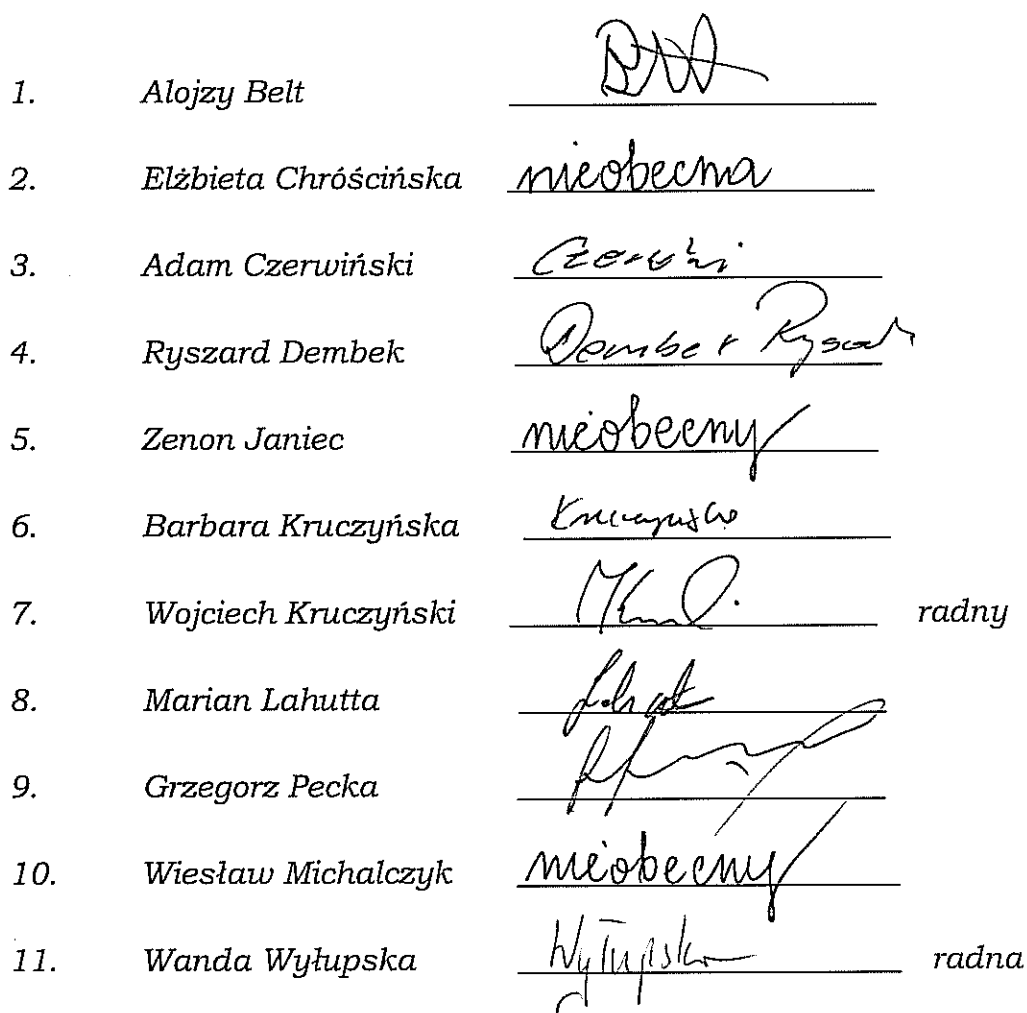 1. Alojzy Belt
2. Elżbieta Chróścińska nieobecna
3. Adam Czerwiński
4. Ryszard Dembek Dembek Ryszard
5. Zenon Janiec nieobecny
6. Barbara Kruczyńska
7. Wojciech Kruczyński radny
8. Marian Lahutta
9. Grzegorz Pecka
10. Wiesław Michalczyk nieobecny
11. Wanda Wyłupska Wyłupska radna